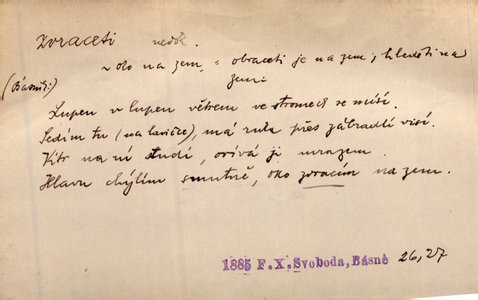 zvraceti nedok.
~ oko na zem, = obraceti je na zem; hleděti na
zem:
(Básník:)
Lupen v lupen větrem ve stromech se mísí.
Sedím tu (na lavičce), má ruka přes zábradlí visí.
Vítr na ní studí, ovívá ji mrazem.
Hlavu chýlím smutně, oko zvracím na zem.
1885 F.X.Svoboda, Básně 26, 27